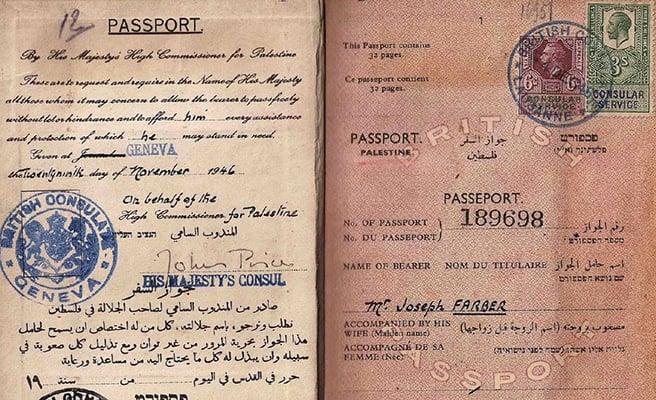 12
PASSPORT.
By His Majesty's High Commissioner for Palestine
These are to request and require in the Name of His Majesty
all those whom it may concern to allow the bearer to pass freely
without let or hindrance and to afford him every assistance
and protection of which he may stand in need.
Given at GENEVA
the day of November 1946
On behalf of the
High Commissioner for Palestine
המندوب السامي הנציב
BRITISH CONSULATE
GENEVA
John Price
HIS MAJESTY'S CONSUL
جواز السفر
صادر من المندوب السامي لصاحب الجلالة في فلسطين
نطلب ونرجو، باسم جلالته، كل من له اختصاص ان يسمح لحامل
هذا الجواز بحرية المرور من غير توان ومع تذليل كل صعوبة في
سبيله وان يبذل له كل ما يحتاج اليه من مساعدة ورعاية
حرر في القدس في اليوم من سنة ١٩
1
This Passport contains
32 pages.
Ce passeport contient
32 pages.
BRITISH
6
CONSULAR
SERVICE
3s
CONSULAR
SERVICE
BRITISH
PASSPORT. جواز السفر פספורט
PALESTINE. فلسطين פלשתינה (א״י)
PASSEPORT.
No. OF PASSPORT 189698 رقم الجواز
No. DU PASSEPORT מספר הפספורט
NAME OF BEARER NOM DU TITULAIRE اسم حامل الجواز
שם נושא הפספורט
Mr. Joseph FARBER
ACCOMPANIED BY HIS
WIFE (Maiden name) مصحوب بزوجته (اسم الزوجة قبل زواجها)
ACCOMPAGNÉ DE SA
FEMME (Née) נלוית אליו אשתו (שמה לפני נישואיה)
PASSPO